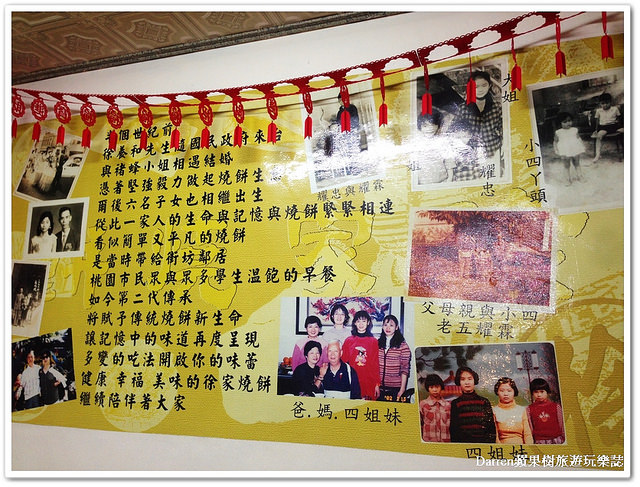 半個世紀前
徐養和先生隨國民政府來台
與褚蜂小姐相遇結婚
憑著堅強毅力做起燒餅生意
爾後六名子女也相繼出生
從此一家人的生命與記憶與燒餅緊緊相連
看似簡單又平凡的燒餅
是當時帶給街坊鄰居
桃園市民眾與眾多學生溫飽的早餐
如今第二代傳承
將賦予傳統燒餅新生命
讓記憶中的味道再度呈現
多變的吃法開啟你的味蕾
健康 幸福 美味的徐家燒餅
繼續陪伴著大家
耀忠與耀霖
大姐
耀忠
小四丫頭
父母親與小四
老五耀霖
爸.媽.四姐妹
四姐妹
Darren蘋果樹旅遊玩樂誌